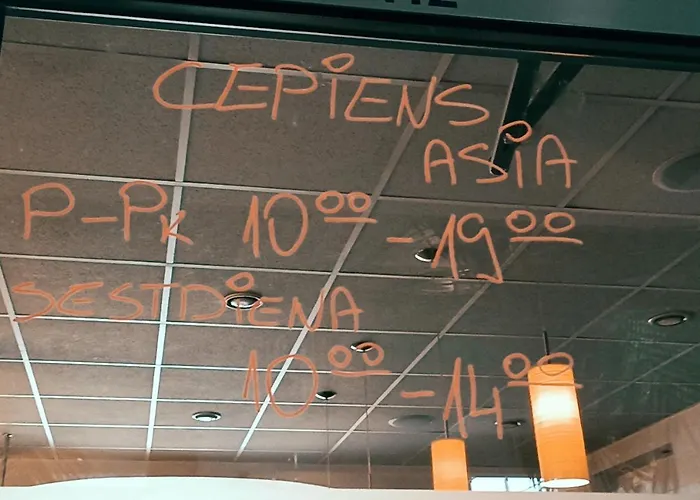 CEPIENS
ASIA
P-Pk 10⁰⁰-19⁰⁰
SESTDIENA
10⁰⁰-14⁰⁰